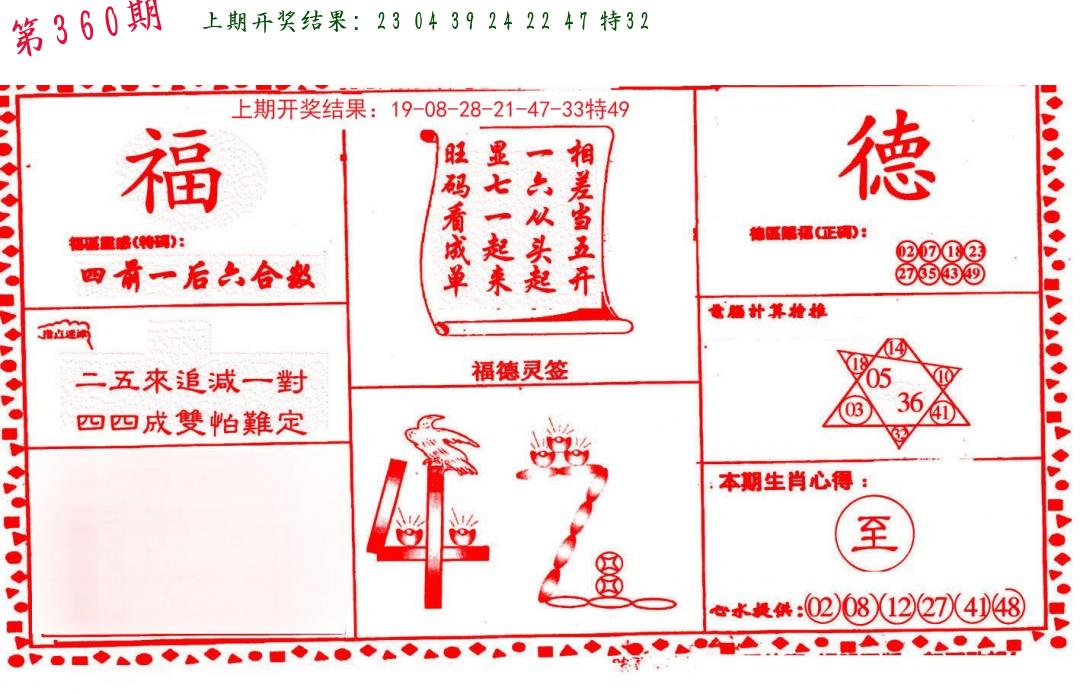 第360期
上期开奖结果: 23 04 39 24 22 47 特32
上期开奖结果: 19-08-28-21-47-33特49
福
福區靈感(特碼):
四前一后六合数
指点迷津
二五來追減一對
四四成雙怕難定
相差当五开
一六从头起
显七一起来
旺码看成单
福德灵签
42
德
德區賜福(正碼):
02 07 18 23
27 35 43 49
電腦計算榜推
14
18 10
05
36
03 41
32
本期生肖心得:
至
心水提供: 02 08 12 27 41 48